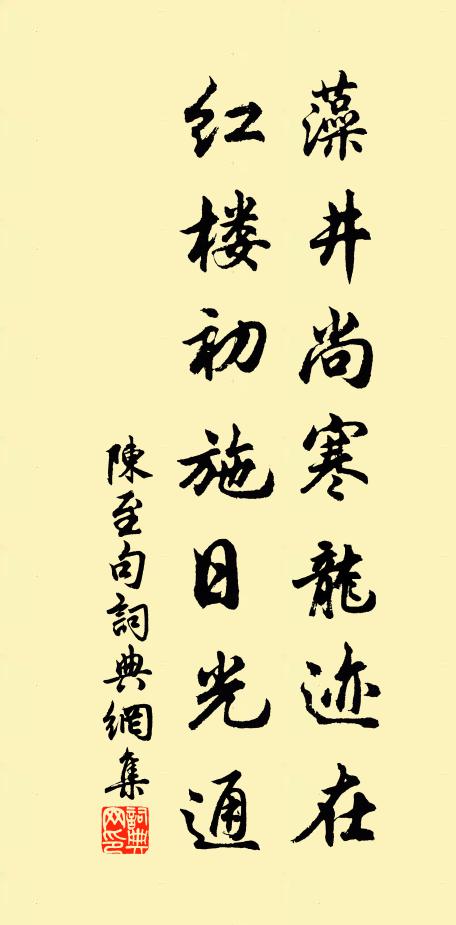 藻井尚寒龍迹在
红楼初施日光通
陳至句詞典網集
詞典网印